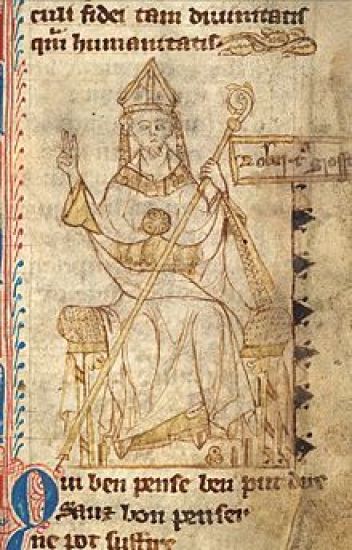 culi fidei tam diuinitatis
humanitatis
Qui ben pense ben put dire
Sanz bon penser
ne pot suffire